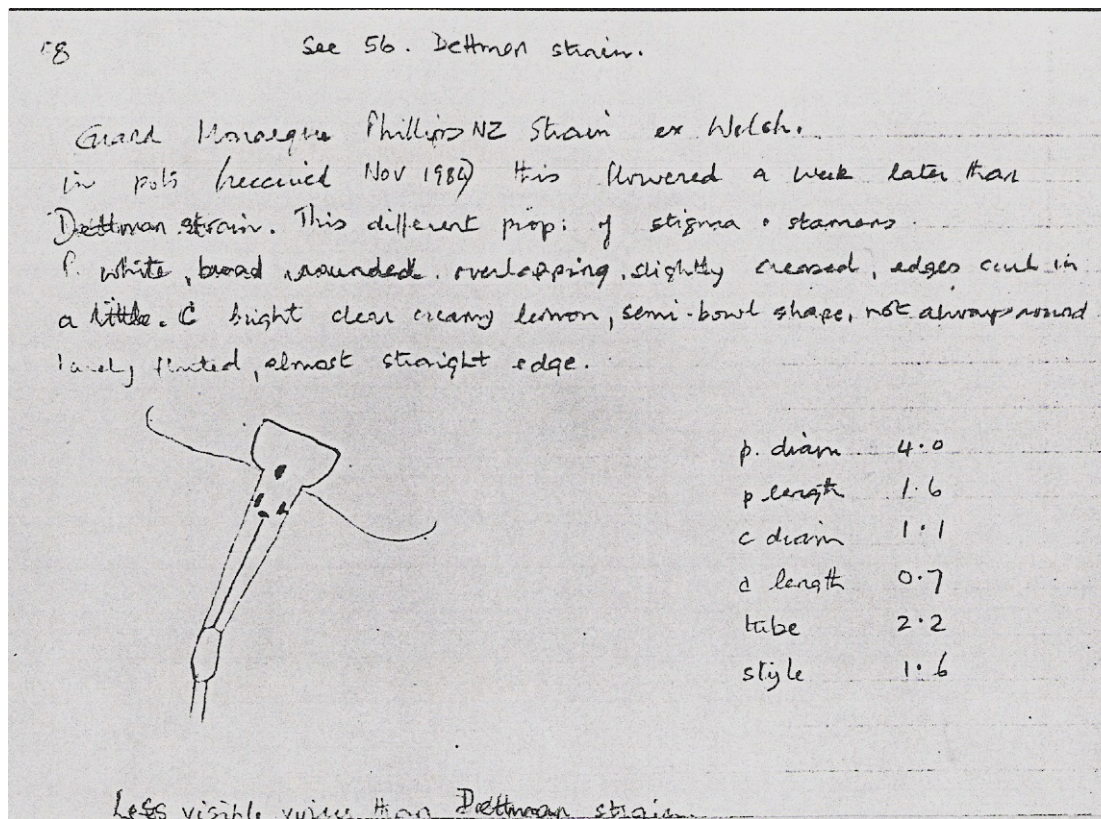 58 See 56. Dettman strain.
Grand Monarque Phillips NZ Strain ex Welch.
in pots (received Nov 1984) this flowered a week later than
Dettman strain. This different prop: of stigma & stamens
P. white, broad, rounded. overlapping, slightly creased, edges curl in
a little. C bright clear creamy lemon, semi-bowl shape, not always round
fluted, almost straight edge.
p. diam 4.0
p length 1.6
c diam 1.1
c length 0.7
tube 2.2
style 1.6
Less visible than Dettman strain.